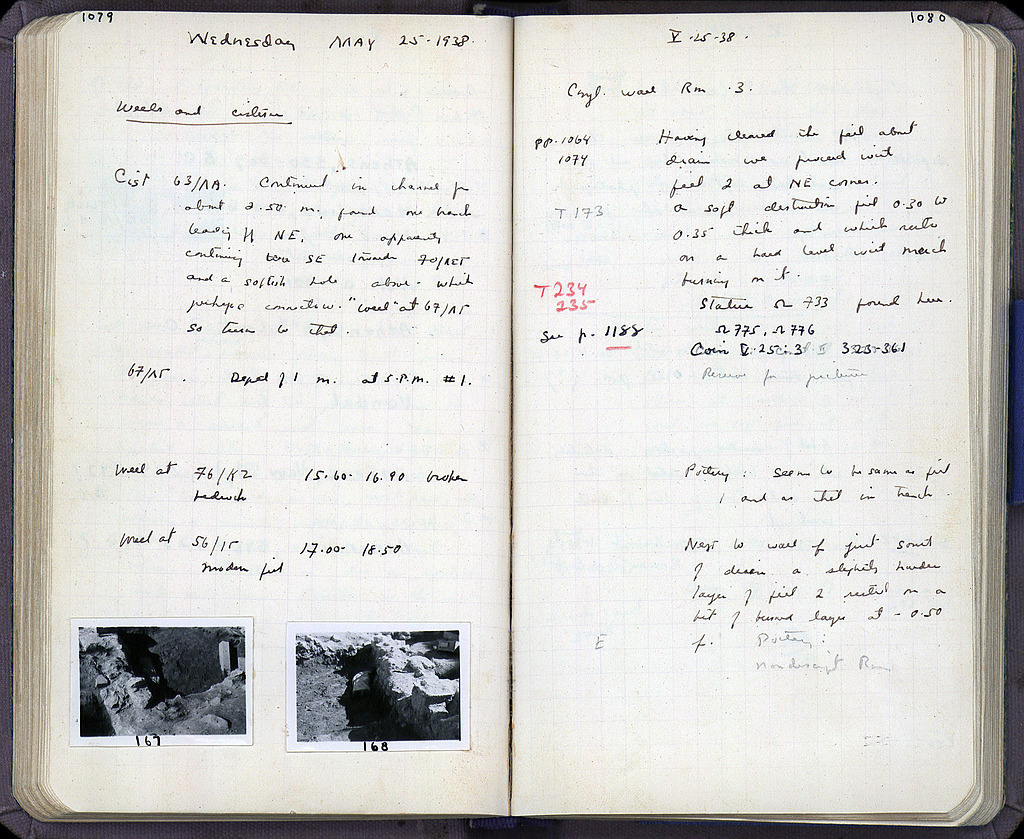 1079
Wednesday MAY 25-1938.
Wells and cistern
Cist 63/ΛΑ. Continued in channel for
about 2.50 m. found one branch
leading off NE, one apparently
continuing SE towards 70/
and a softish hole above which
perhaps connects w. "well" at 67/ΛΣΤ
so turn to that.
67/ΛΣΤ. Depth of 1 m. at 5 P.M. #1.
Well at 76/ΚΖ 15.60-16.90 broken
bedrock
Well at 56/ΙΣΤ 17.00-18.50
modern fill
167
168
1080
V-25-38.
wall Rm 3.
pp. 1064
1074
Having cleared the fill about
drain we proceed with
fill 2 at NE corner.
T 173
a soft destruction fill 0.30 to
0.35 thick and which rests
on a hard level with much
burning on it.
T 234
235
Statue Ω 733 found here.
See p. 1188
Ω 775, Ω 776
Coin V-25-38 323-361
Reserve for
Pottery: seems to be same as fill
1 and as that in trench.
Next to wall just south
of drain a slightly harder
layer of fill 2 rested on a
bit of burned layer at -0.50
E
Pottery:
nondescript Rom